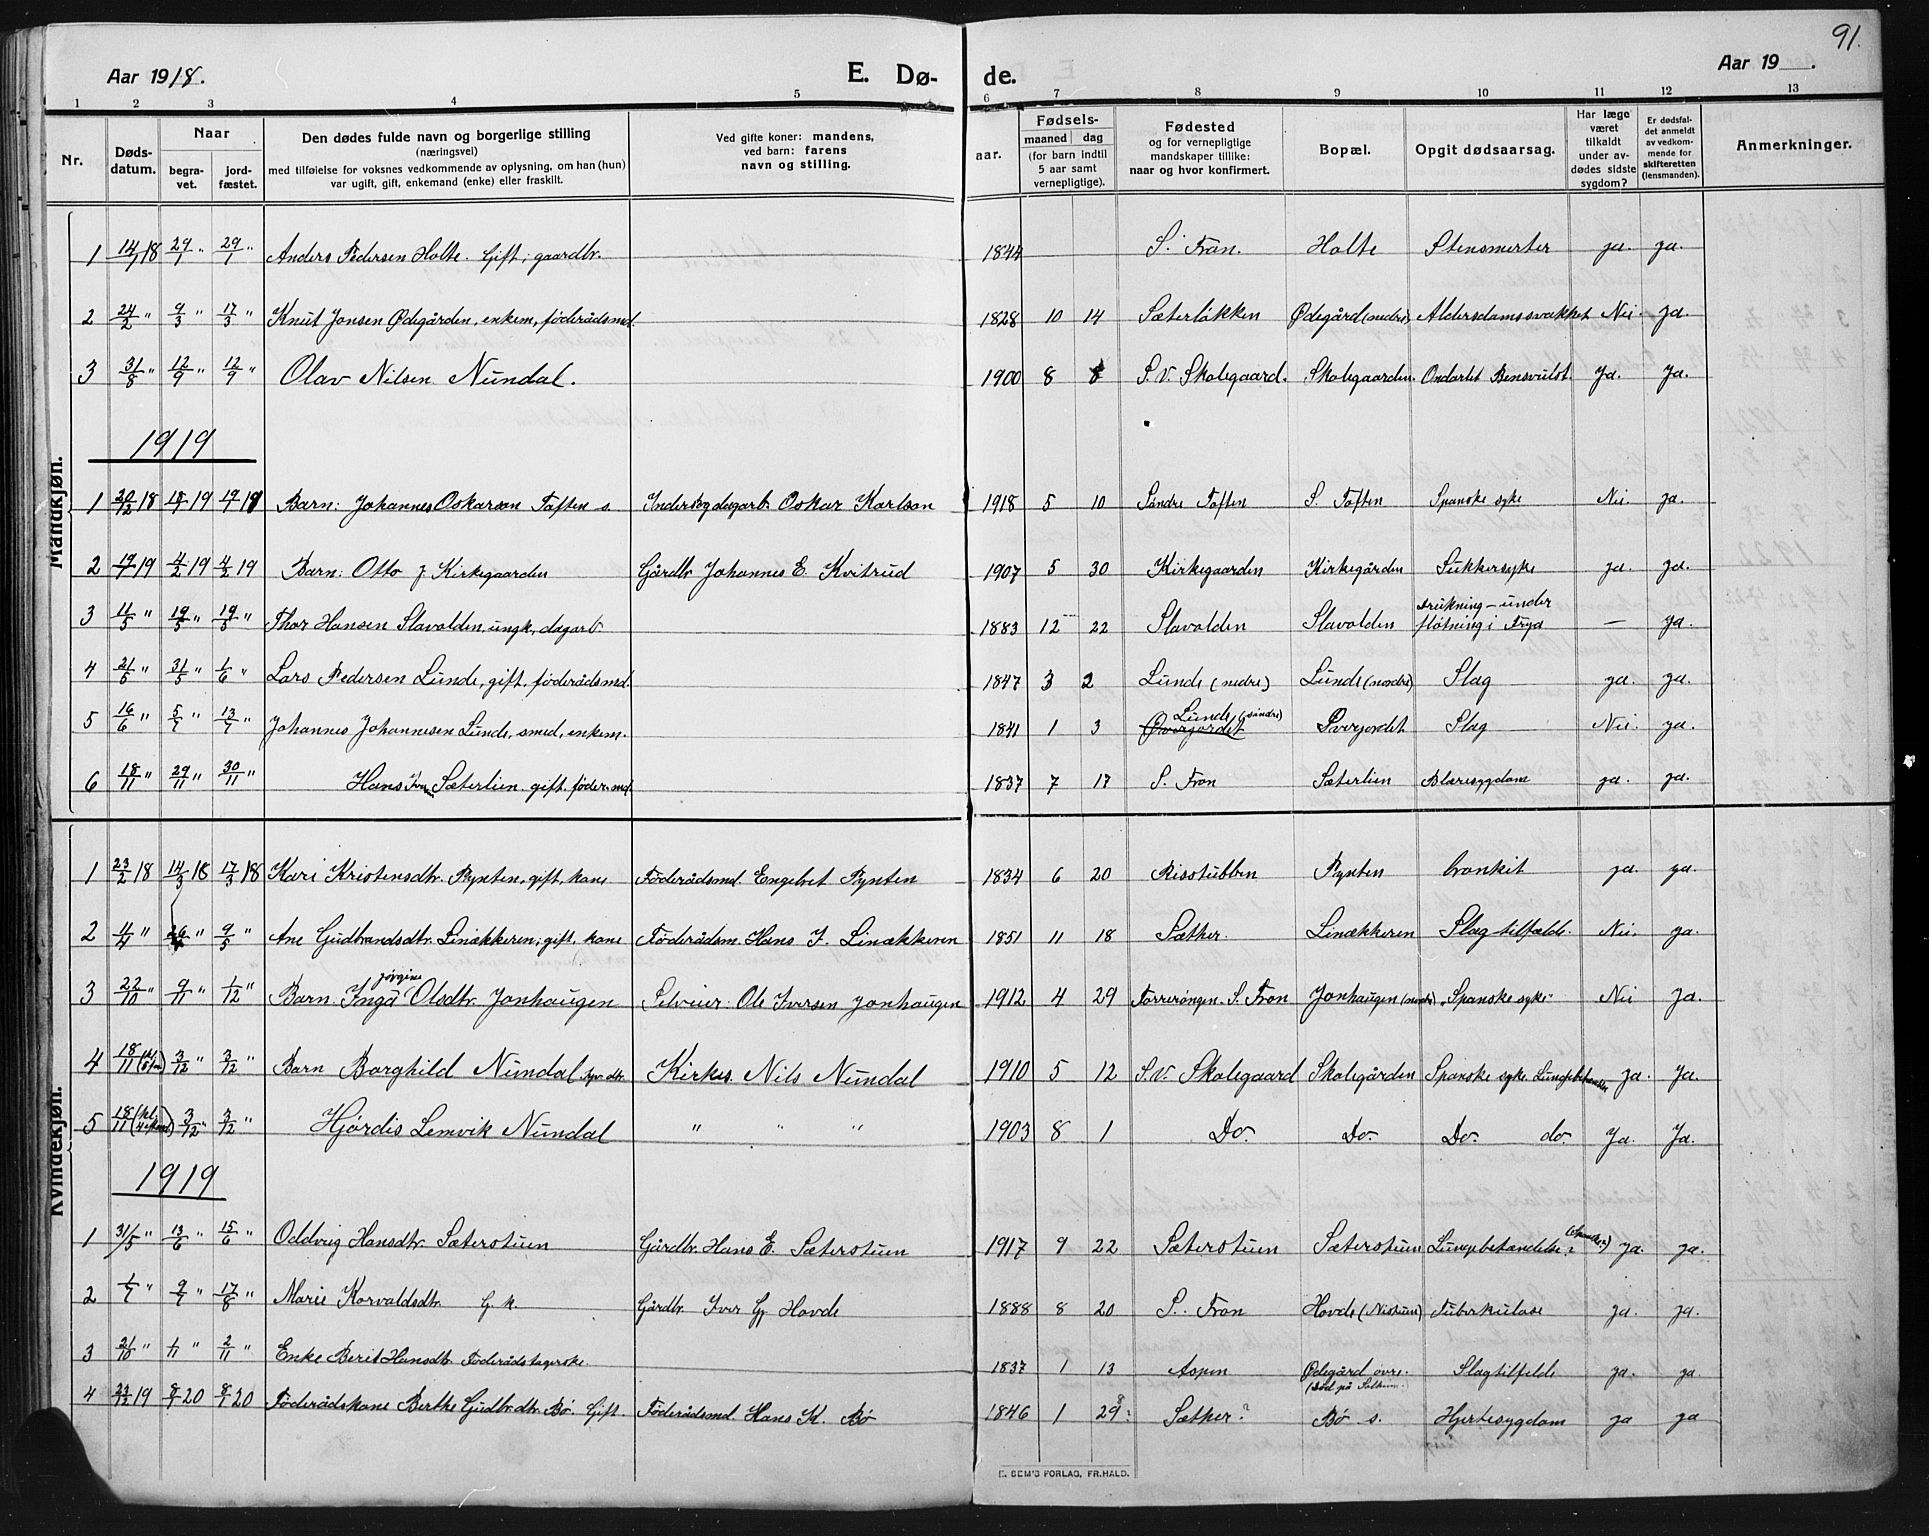 91.
Aar 1918. E. Dø- de. Aar 19 .
1 2 3 4 5 6 7 8 9 10 11 12 13
Nr. Døds-datum. Naar begra-vet. jord-fæstet. Den dødes fulde navn og borgerlige stilling (næringsvei) med tilføielse for voksnes vedkommende av oplysning, om han (hun) var ugift, gift, enkemand (enke) eller fraskilt. Ved gifte koner: mandens, ved barn: farens navn og stilling. Fødsels- aar. maaned dag (for barn indtil 5 aar samt vernepligtige). Fødested og for vernepligtige mandskaper tillike: naar og hvor konfirmert. Bopæl. Opgit dødsaarsag. Har læge været tilkaldt under av-dødes sidste sygdom? Er dødsfal-det anmeldt av vedkom-mende for skifteretten (lensmanden). Anmerkninger.
Mandkjøn.
1 14/1 18 29/1 " 29/1 " Anders Pedersen Holte. Gift; gaardbr. 1844 S. Fron. Holte Stensmerter ja. ja.
2 24/2 " 9/3 " 17/3 " Knut Jonsen Ødegården, enkem, føderådsmd. 1828 10 14 Sæterløkken Ødegård (nedre) Alderdomssvækket Nei. ja.
3 31/8 " 12/9 " 12/9 " Olav Nilsen Nundal. 1900 8 8 S.V. Skolegaard. Skolegaarden. Ondartet Bensvulst. Ja. Ja.
1919
1 20/12 18 18/1 19 19/1 19 Barn: Johannes Oskarson Toften s. Oskar Karlson 1918 5 10 Søndre Toften S. Toften Spanske syke Nei. ja.
2 19/1 19 4/2 19 4/2 19 Barn: Otto J Kirkegaarden Gårdbr Johannes E. Kvitrud 1907 5 30 Kirkegaarden Kirkegården Sukkersyke ja. ja.
3 11/5 " 19/5 " 19/5 " Thor Hansen Slavolden, ungk, dagarb. 1883 12 22 Slavolden Slavolden Drukning - under fløtning i Frya — ja.
4 21/5 " 31/5 " 1/6 " Lars Pedersen Lunde, gift, føderådsmd. 1847 3 2 Lunde (nedre) Lunde (nordre) Slag ja. ja.
5 16/6 " 5/7 " 13/7 " Johannes Johannesen Lunde, smed, enkem. 1841 1 3 Lunde (søndre) Slag Nei. ja.
6 18/11 " 29/11 " 30/11 " Hans Sæterlien, gift. føder.md. 1837 7 17 S. Fron Sæterlien Blæresygdom ja. ja.
Kvindekjøn.
1 23/2 18 14/3 18 17/3 18 Kari Kristensdtr. Rynten, gift, kone Føderådsmd. Engebret Rynten 1834 6 20 Risstubben Rynten bronkit ja. ja.
2 11/4 " 26/4 " 9/5 " Ane Gudbrandsdtr. Linækkeren, gift, kone Føderådsm. Hans J. Linækkeren 1851 11 18 Sæther. Linækkeren Slagtilfælde. Nei. ja.
3 22/10 " 9/11 " 1/12 " Barn Inga Jørgine Olsdtr. Jonhaugen Selveier: Ole Iversen Jonhaugen 1912 4 29 S. Fron Jonhaugen (nordre) "Spanske syke" Nei Ja.
4 18/11 3/12 " 3/12 " Barn Borghild Nundal Kirkes. Nils Nundal 1910 5 12 S.V. Skolegaard Skolegården Spanske syke. Lungebetændelse ja. Ja.
5 18/11 3/12 " 3/12 " Hjørdis Lemvik Nundal " " " 1903 8 1 Do. Do. Do. do. Ja. Ja.
1919
1 31/5 " 13/6 " 15/6 " Oddvig Hansdtr. Sæterstuen Gårdbr. Hans E. Sæterstuen 1917 9 22 Sæterstuen Sæterstuen Lungebetændelse ja. ja.
2 1/7 " 9/7 " 17/8 " Marie Korvaldsdtr. G.k. Gårdbr. Iver G. Hovde 1888 8 20 S. Fron Hovde (Nistuen) Tuberkulose ja. ja.
3 21/10 " 1/11 " 2/11 " Enke Berit Hansdtr. Føderådstagerske. 1837 1 13 Aspen Ødegård øvre. Slagtilfælde ja. ja.
4 23/12 19 8/1 20 8/1 20 Føderådskone Berthe Gudbr.dtr. Bø. Gift. Føderådsmd. Hans K. Bø 1846 1 29? Sæther? Bø s. Hjertesygdom ja ja
E. SEM'S FORLAG, FR.HALD.